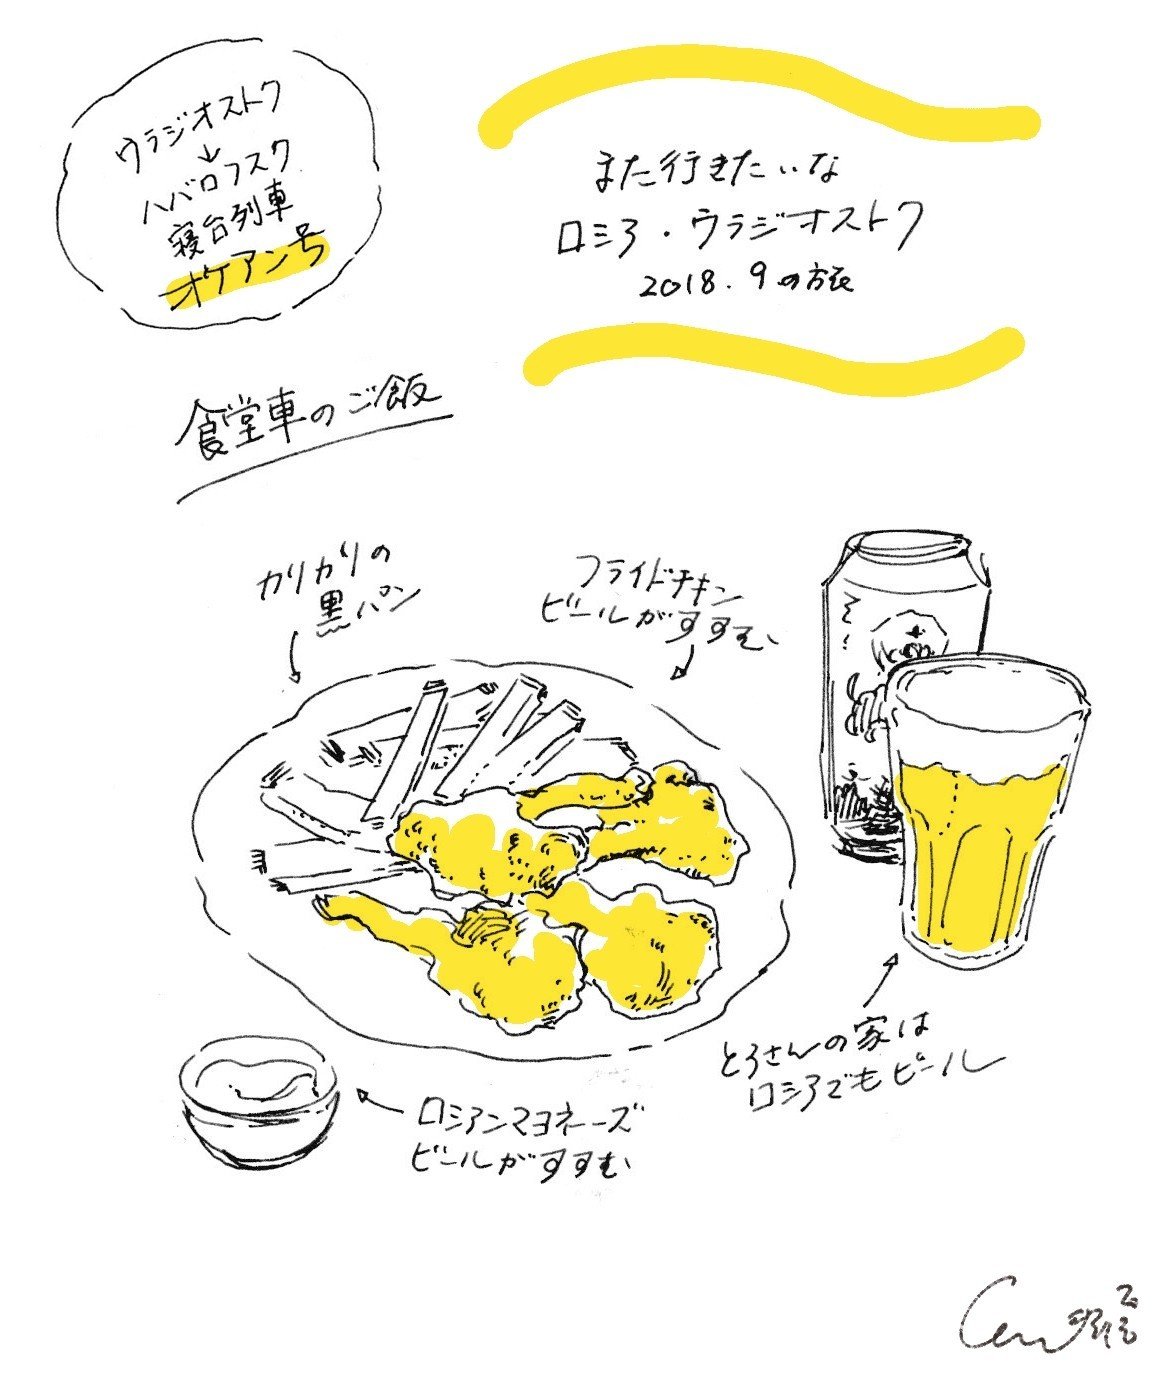 ウラジオストク
↓
ハバロフスク
寝台列車
オケアン号
また行きたいな
ロシア・ウラジオストク
2018.9の旅
食堂車のご飯
カリカリの
黒パン
フライドチキン
ビールがすすむ
とろさんの家は
ロシアでもビール
ロシアンマヨネーズ
ビールがすすむ